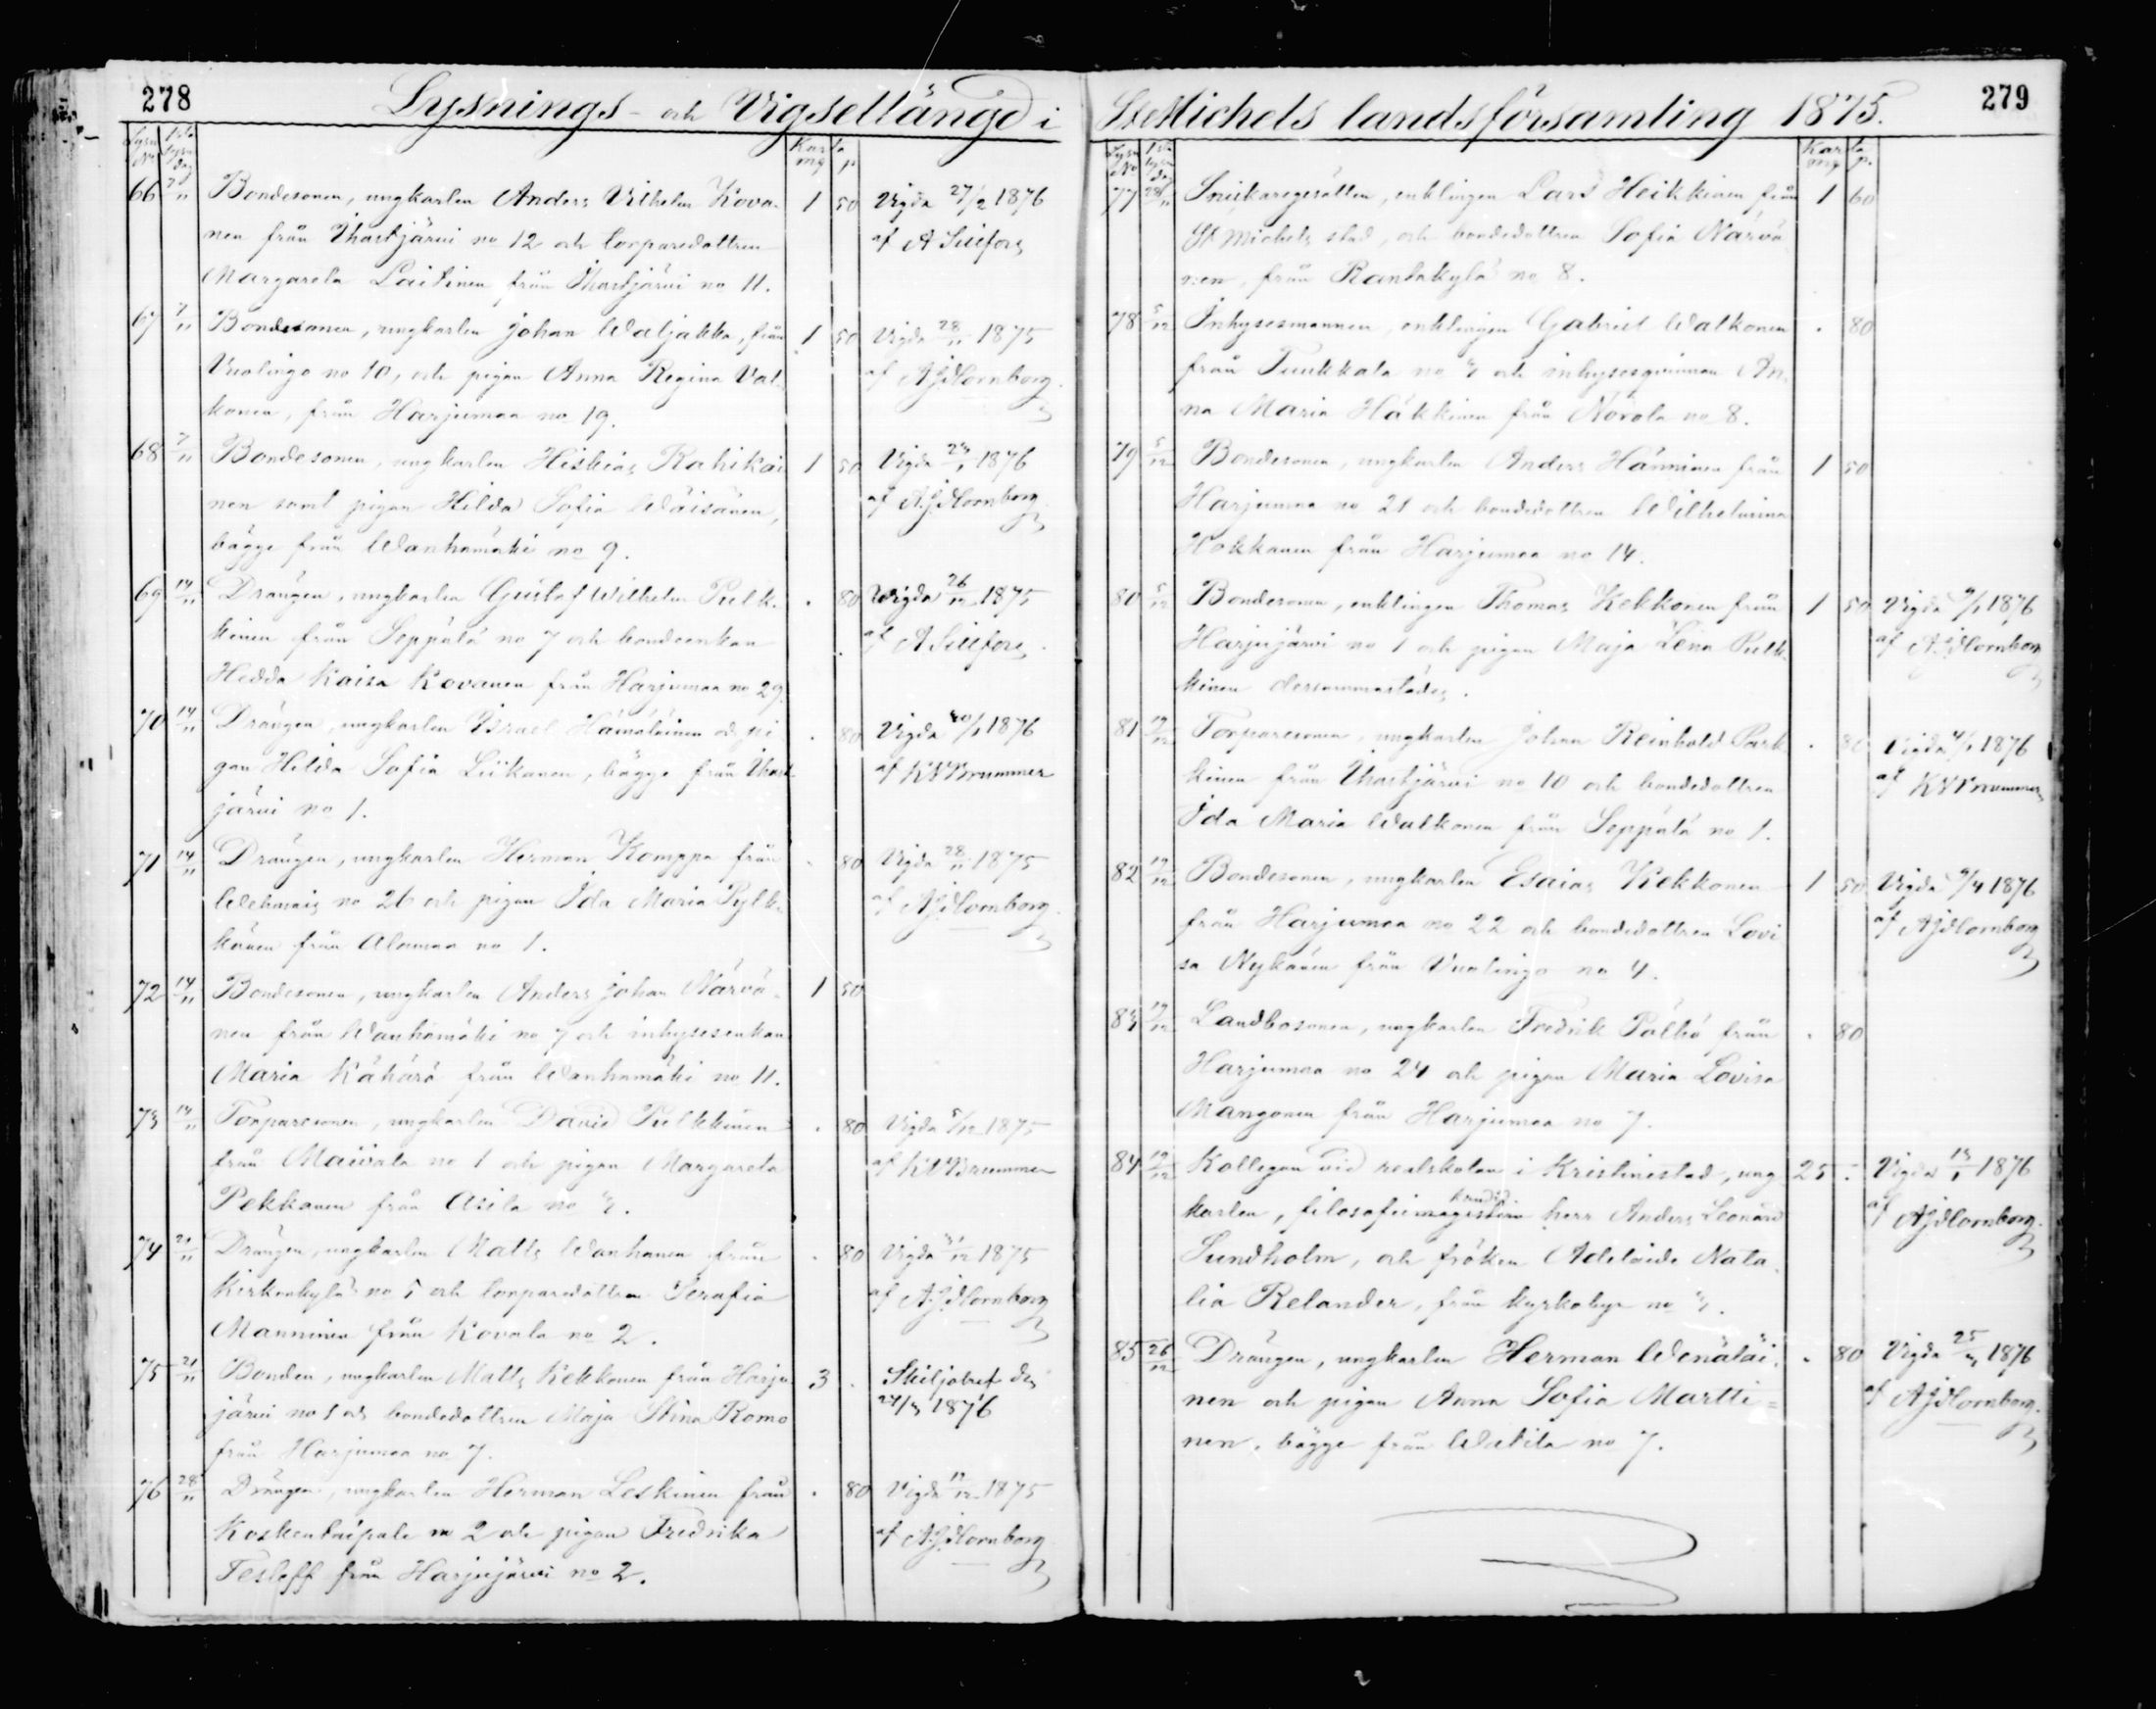 278
Lysnings- och Vigsellängd i
Lysn No
1sta Lysn dag
Karta
mg p
66 7/11 Bondesonen, ungkarlen Anders Vilhelm Kova- 1 50 Vigda 27/2 1876
nen från Ihastjärvi no 12 och torparedottren af A Sillfors
Margareta Laitinen från Ihastjärvi no 11.
67 7/11 Bondesonen, ungkarlen Johan Waljakka, från 1 50 Vigda 28/11 1875
Vuolingo no 10, och pigan Anna Regina Val- af A.J. Hornborg
konen, från Harjumaa no 19.
68 7/11 Bondesonen, ungkarlen Hiskias Rahikai 1 50 Vigda 1876
nen samt pigan Hilda Sofia Wäisänen, af A.J. Hornborg
bägge från Wanhamäki no 9.
69 14/11 Drängen, ungkarlen Gustaf Wilhelm Pulk- . 80 Wigda 26/12 1875
kinen från Seppälä no 7 och bondeenkan af A Sillfors
Hedda Kaisa Kovanen från Harjumaa no 29.
70 14/11 Drängen, ungkarlen Israel Hämäläinen och pi . 80 Vigda 1876
gan Hilda Sofia Liikanen, bägge från Ihast af K V Brummer
järvi no 1.
71 14/11 Drängen, ungkarlen Herman Komppa från . 80 Vigda 28/11 1875
Wehmais no 26 och pigan Ida Maria Pylk- af A.J. Hornborg
känen från Alamaa no 1.
72 14/11 Bondesonen, ungkarlen Anders Johan Närvä- 1 50
nen från Wanhamäki no 7 och inhysesenkan
Maria Kähärä från Wanhamäki no 11.
73 14/11 Torparesonen, ungkarlen David Pulkkinen . 80 Vigda 5/12 1875
från Maivala no 1 och pigan Margareta af K V Brummer
Pekkanen från Asila no 3.
74 21/11 Drängen, ungkarlen Matts Wanhanen från . 80 Vigda 1875
Kirkonkylä no 5 och torparedottren Serafia af A.J. Hornborg
Manninen från Kovala no 2.
75 21/11 Bonden, ungkarlen Matts Kekkonen från Harju 3 . Skiljobref den
järvi no 1 och bondedottren Maja Stina Romo 1876
från Harjumaa no 7.
76 28/11 Drängen, ungkarlen Herman Leskinen från . 80 Vigda 12/12 1875
Koskentaipale no 2 och pigan Fredrika af A.J. Hornborg
Tesleff från Harjujärvi no 2.
279
S:t Michels landsförsamling 1875.
Lysn No
1sta lysn dag
Karta
mg p.
77 28/11 Snickaregesällen, enklingen Lars Heikkinen från 1 60
St Michels stad, och bondedottren Sofia Närvä
nen, från Rantakylä no 8.
78 5/12 Inhysesmannen, enklingen Gabriel Walkonen . 80
från Tuukkala no 3 och inhysesqvinnan An-
na Maria Häkkinen från Norola no 8.
79 5/12 Bondesonen, ungkarlen Anders Hänninen från 1 50
Harjumaa no 21 och bondedottren Wilhelmina
Hokkanen från Harjumaa no 14.
80 5/12 Bondesonen, enklingen Thomas Kekkonen från 1 50 Vigda 9/1 1876
Harjujärvi no 1 och pigan Maja Lena Pulk- af A.J. Hornborg
kinen dersammastädes.
81 12/12 Torparesonen, ungkarlen Johan Reinhold Park . 80 Vigda 1876
kinen från Ihastjärvi no 10 och bondedottren af K V Brummer
Ida Maria Walkonen från Seppälä no 1.
82 12/12 Bondesonen, ungkarlen Esaias Kekkonen 1 50 Vigda 9/4 1876
från Harjumaa no 22 och bondedottren Lovi af A J Hornborg
sa Nykänen från Vuolingo no 4.
83 12/12 Landbosonen, ungkarlen Fredrik Pöllö från . 80
Harjumaa no 24 och pigan Maria Lovisa
Mangonen från Harjumaa no 7.
84 12/12 Kollegan vid realskolan i Kristinestad, ung 25 . Vigda 13/1 1876
kandid.
karlen, filosofiemagistern herr Anders Leonard af A J Hornborg
Sundholm, och fröken Adelaide Nata-
lia Relander, från kyrkobyn no 3.
85 26/12 Drängen, ungkarlen Herman Wenäläi- . 80 Vigda 1876
nen och pigan Anna Sofia Martti= af A J Hornborg
nen, bägge från Watila no 7.